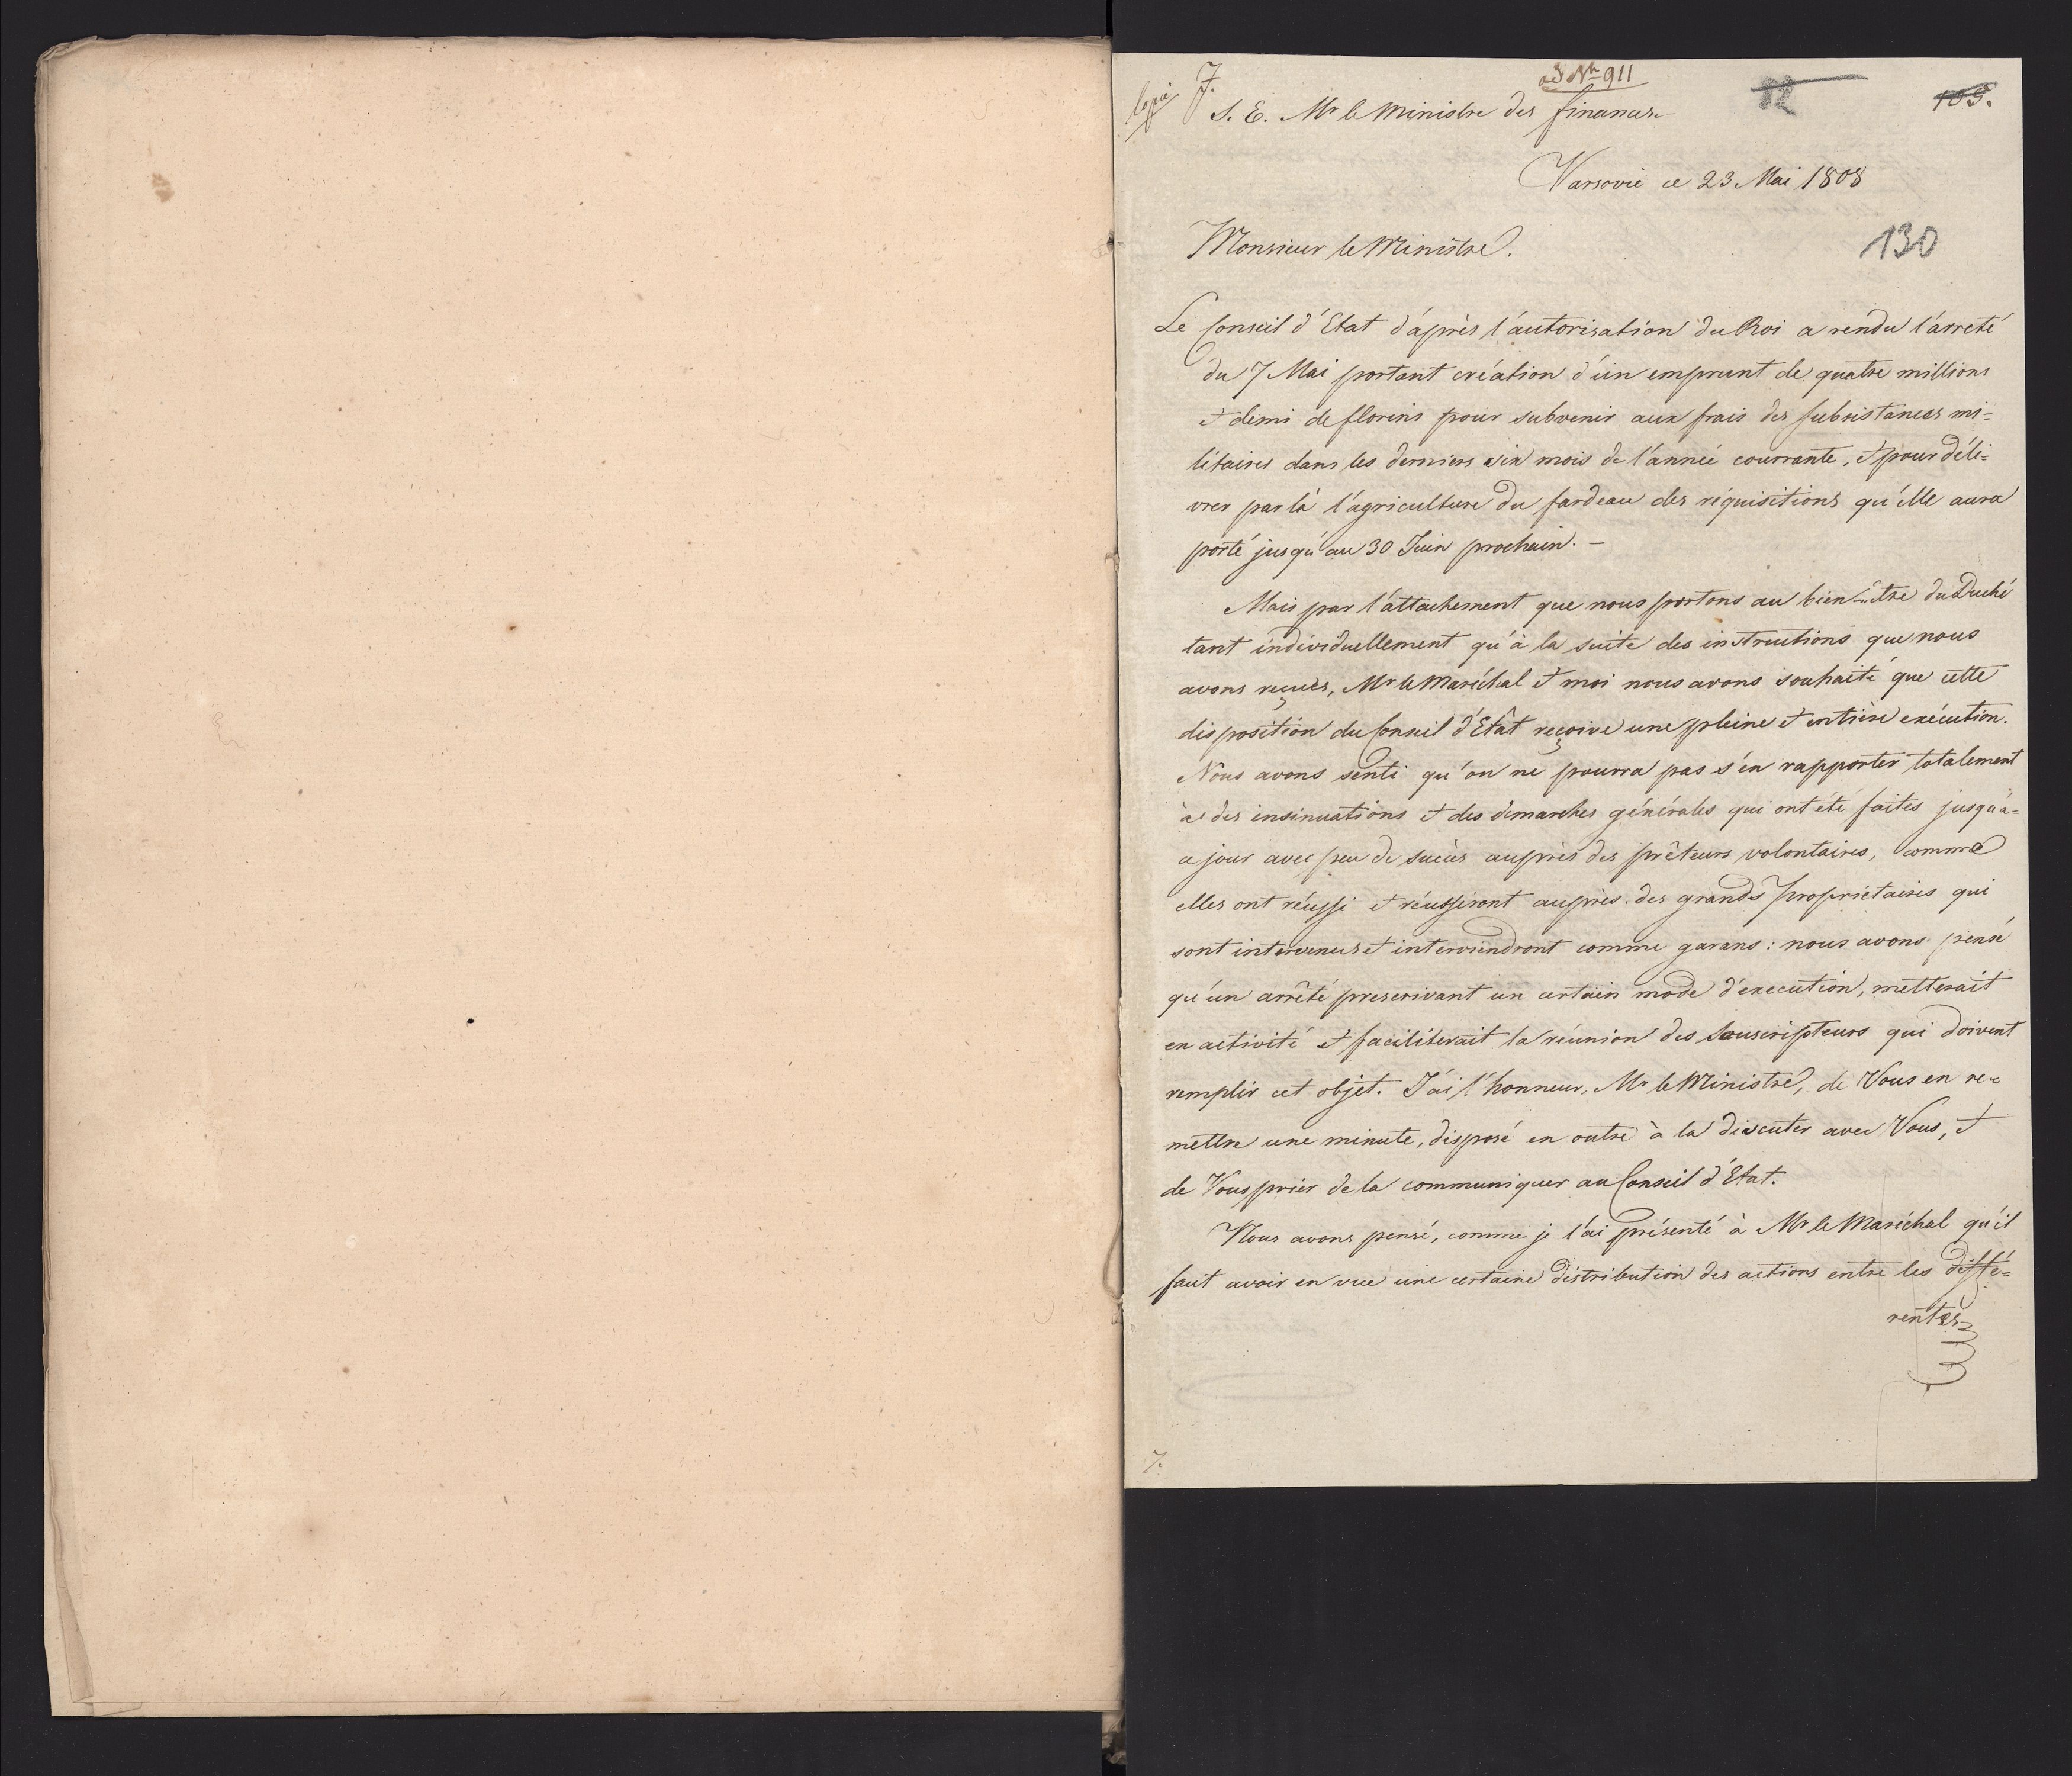 ad Nr 911
Copie 7.
S. E. Mr le Ministre des finances.
82
103.
Varsovie ce 23 Mai 1808
130
Monsieur le Ministre.
Le Conseil d'Etat d'après l'autorisation du Roi a rendu l'arreté
du 7 Mai portant création d'un emprunt de quatre millions
et demi de florins pour subvenir aux frais des subsistances mi=
litaires dans les derniers six mois de l'année courrante, et pour déli=
vrer par là l'agriculture du fardeau des réquisitions qu'elle aura
porté jusqu'au 30 Juin prochain. —
Mais par l'attachement que nous portons au bien-être du Duché
tant individuellement qu'à la suite des instructions que nous
avons reçues, Mr le Maréchal et moi nous avons souhaité que cette
disposition du Conseil d'Etât reçoive une pleine et entière exécution.
Nous avons senti qu'on ne pourra pas s'en rapporter totalement
à des insinuations et des demarches générales qui ont été faites jusqu'à=
ce jour avec peu de succès auprès des prêteurs volontaires, comme
elles ont réussi et réussiront auprès des grands Propriétaires qui
sont intervenus et interviendront comme garans: nous avons pensé
qu'un arrêté prescrivant un certain mode d'execution, metterait
en activité et faciliterait la réunion des Souscripteurs qui doivent
remplir cet objet. J'ai l'honneur, Mr le Ministre, de Vous en re=
mettre une minute, disposé en outre à la discuter avec Vous, et
de Vous prier de la communiquer au Conseil d'Etat.
Nous avons pensé, comme je l'ai présenté à Mr le Maréchal qu'il
faut avoir en vue une certaine distribution des actions entre les diffé=
rentes
7.